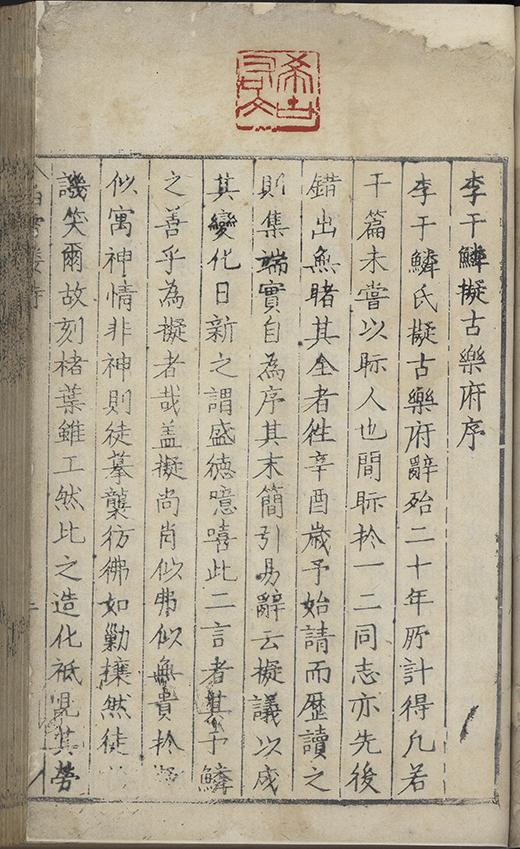 李于鱗擬古樂府序
李于鱗氏擬古樂府辭殆二十年所計得凡若
干篇未嘗以眎人也間眎於一二同志亦先後
錯出無睹其全者徃辛酉歲予始請而歷讀之
則集端實自為序其末簡引易辭云擬議以成
其變化日新之謂盛徳噫嘻此二言者其于鱗
之善乎為擬者哉盖擬尚肖似弗似無貴於
似寓神情非神則徒摹襲彷彿如勦攘然徒
譏笑爾故刻楮葉雖工然此之造化祗見其勞
白雪樓詩